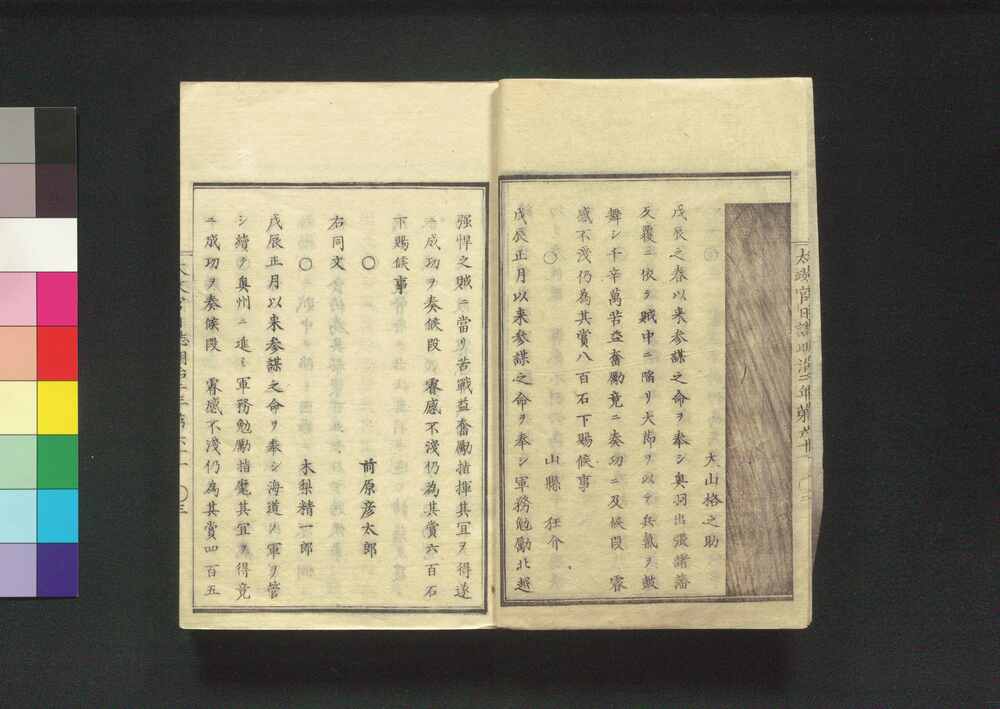 太政官日誌明治二年第六十一
大山格之助
戊辰之春以来参謀之命ヲ奉シ奥羽出張諸藩
反覆ニ依テ賊中ニ陥リ大節ヲ以テ兵氣ヲ皷
舞シ千辛萬苦益奮勵竟ニ奏功ニ及候段 睿
感不淺仍為其賞八百石下賜候事
○ 山縣 狂介
戊辰正月以来参謀之命ヲ奉シ軍務勉勵北越
强悍之賊ニ當リ苦戰益奮勵指揮其宜ヲ得遂
ニ成功ヲ奏候段 睿感不淺仍為其賞六百石
下賜候事
○ 前原彦太郎
右同文
○ 木梨精一郎
戊辰正月以来参謀之命ヲ奉シ海道ノ軍ヲ管
シ續テ奥州ニ進ミ軍務勉勵指麾其宜ヲ得竟
ニ成功ヲ奏候段 睿感不淺仍為其賞四百五